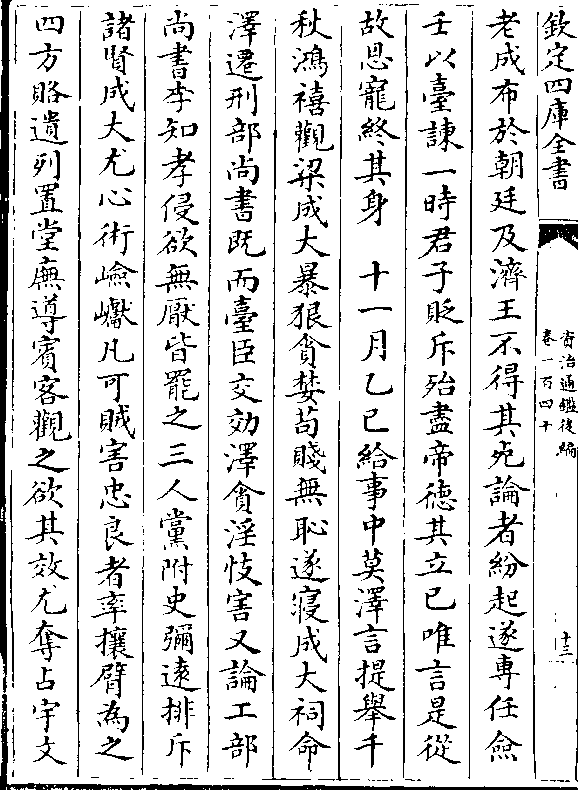 欽定四庫全書
資治通鑑後編
卷一百四十
十三
老成布於朝廷及濟王不得其死論者紛起遂專任僉
壬以臺諫一時君子貶斥殆盡帝德其立已唯言是從
故恩寵終其身　十一月乙巳給事中莫澤言提舉千
秋鴻禧觀梁成大暴狠貪婪苟賤無恥遂寢成大祠命
澤遷刑部尚書既而臺臣交劾澤貪淫忮害又論工部
尚書李知孝侵欲無厭皆罷之三人黨附史彌遠排斥
諸賢成大尤心術嶮巇凡可賊害忠良者率攘臂為之
四方賂遺列置堂廡導賓客觀之欲其效尤奪占宇文